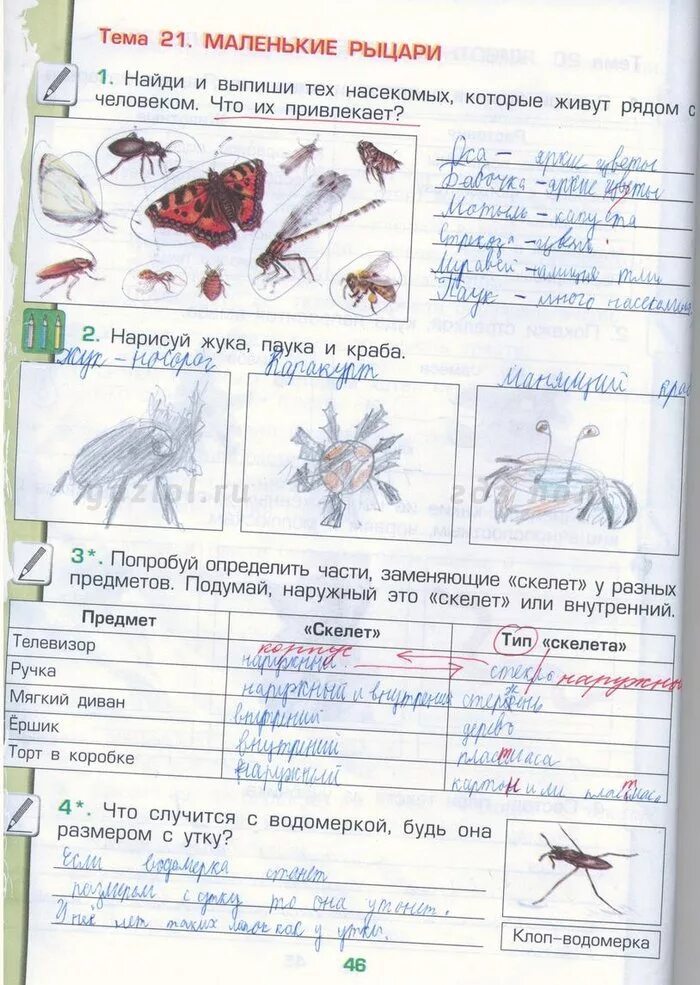 Тема 21. МАЛЕНЬКИЕ РЫЦАРИ
1. Найди и выпиши тех насекомых, которые живут рядом с
человеком. Что их привлекает?
Оса – яркие цветы
Бабочка – яркие цветы
Мотыль – капуста
Стрекоза – цветы
Муравей – тли
Паук – много насекомых
2. Нарисуй жука, паука и краба.
Жук – носорог
Каракурт
Манящий краб
3*. Попробуй определить части, заменяющие «скелет» у разных
предметов. Подумай, наружный это «скелет» или внутренний.
Предмет «Скелет» Тип «скелета»
Телевизор корпус наружный стекло наружный
Ручка наружный и внутрений стержень
Мягкий диван деревь
Ёршик внутрений пластмаса
Торт в коробке наружный картон или пластмаса
4*. Что случится с водомеркой, будь она
размером с утку?
Если водомерка станет
размером с утку то она утонет.
У неё нет таких лапок как у утки.
Клоп–водомерка
46